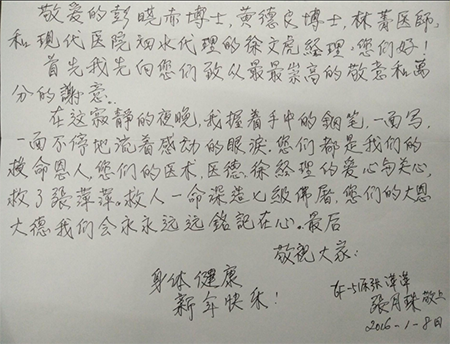 敬爱的彭晓赤博士,黄德良博士,林菁医師,
和现代医院泗水代理的徐文虎经理,您们好!
首先我先向您们致以最最崇高的敬意和萬
分的謝意.
在这寂静的夜晚,我握着手中的钢笔,一面写,
一面不停地流着感动的眼淚,您们都是我们的
救命恩人,您们的医术,医德,徐经理的爱心与关心,
救了張萍萍.救人一命深造七级佛屠,您们的大恩
大德我们会永永远远銘記在心.最后
敬祝大家:
身体健康
新年快乐!
張萍萍
張月珠敬上
2016-1-8日